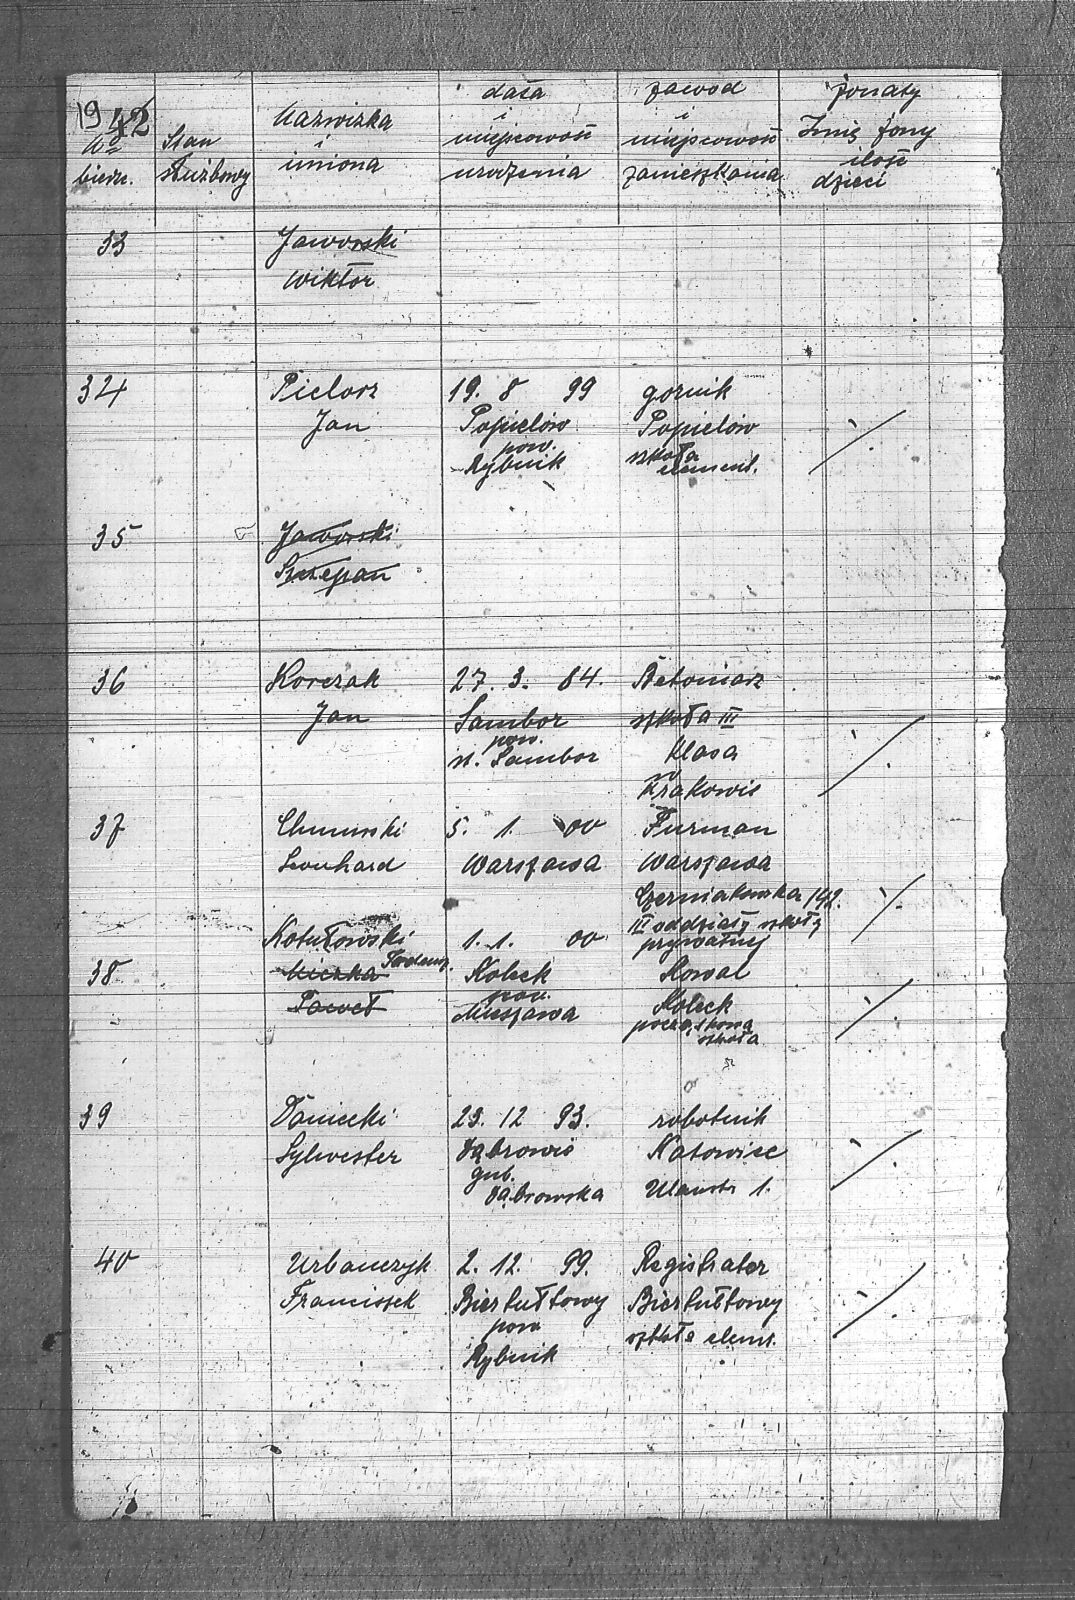 19 42
No bierz.
Stan służbowy
Nazwiska i imiona
data i miejscowość urodzenia
zawód i miejscowość zamieszkania
żonaty Imię żony ilość dzieci
33 Jaworski
Wiktor
34 Pielorz 19. 8 99 gornik
Jan Popielów Popielów
pow. szkoła
Rybnik element.
35 Jaworski
Szczepan
36 Korczak 27. 3. 84. Betoniarz
Jan Sambor szkoła III
pow. klasa
st. Sambor w
Krakowie
37 Chmurski 5. 1. 00 Furman
Leonhard Warszawa Warszawa
Czerniakowska 142.
III oddziały szkoły
Kotułowski 1. 1. 00 prywatnej
38 Miczka Tadeusz Kowal
Paweł pow.
Mieszawa
szkoła
39 Daniecki 23. 12 93. robotnik
Sylwester Dąbrowie Katowice
gub.
Dąbrowska 1.
40 Urbańczyk 2. 12. 99. Registrator
Franciszek Biertułtowy Biertułtowy
pow szkoła elem.
Rybnik